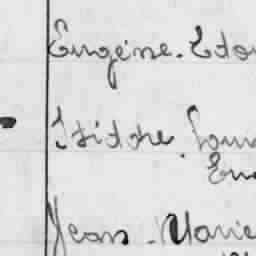 Eugéne. Edo
Isidore. Lou
Eu
Jean. Marie